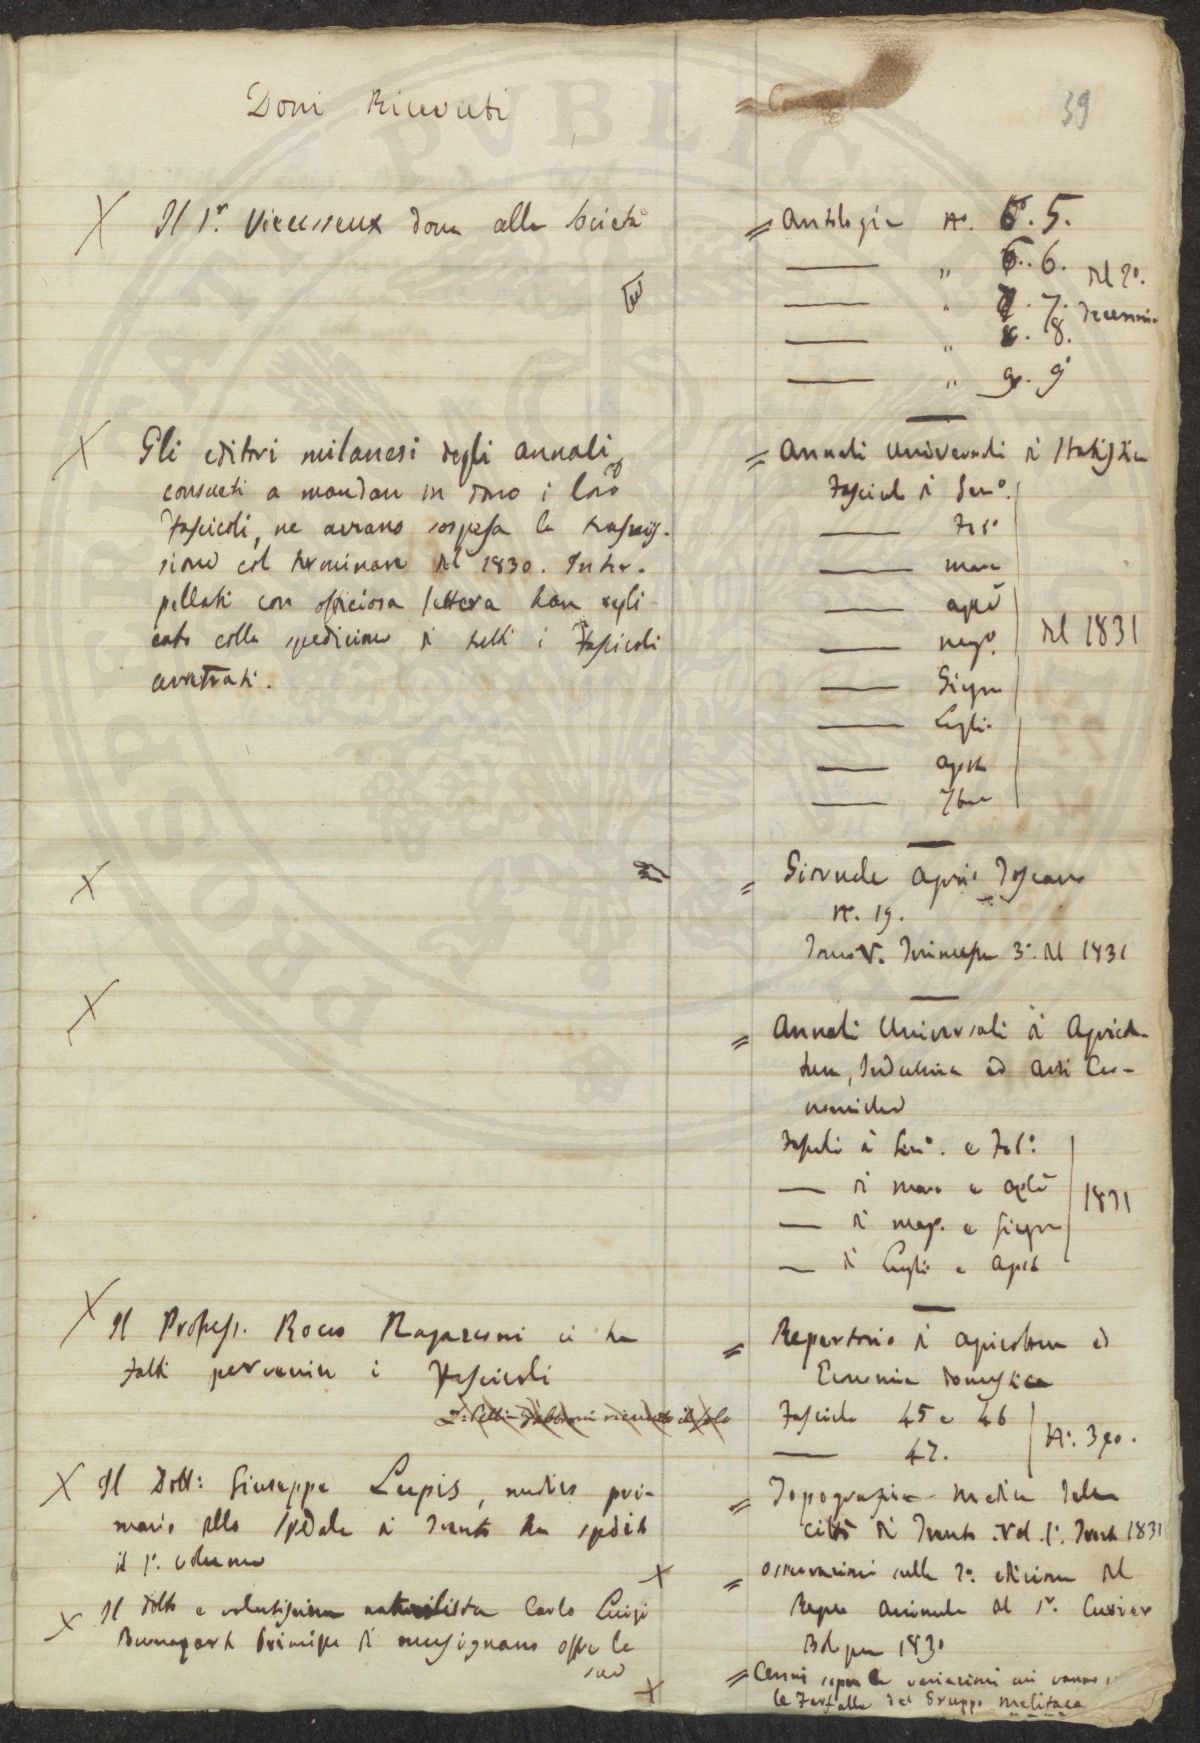 Doni Ricevuti
39
Il Sr. Vieusseux dona alla Società
= Antologia N°. 5.
" 6.
" 7.
" 8.
" 9
del 2°. decennio
Gli editori milanesi degli annali,
consueti a mandare in dono i loro
fascicoli, ne avevano sospesa la trasmis-
sione col terminare del 1830. Inter-
pellati con officiosa lettera han repli-
cato colla spedizione di tutti i fascicoli
arretrati.
= Annali Universali di Statistica
Fascicolo di Genn°.
Feb°
marzo
aple
magg°.
Giugno
Luglio
agosto
7bre
del 1831
= Giornale agrario Toscano
N. 19.
Tomo V. Trimestre 3°. del 1831
= Annali Universali di Agricol-
tura, Industria ed arti Eco-
nomiche
Fascicoli di Genn°. e Feb°:
di marzo e aple
di magg. e Giugno
di Luglio e agosto
1831
Il Profess. Rocco Ragazzoni ci ha
fatti pervenire i Fascicoli
= Repertorio di agricoltura ed
Economia domestica
Fascicolo 45 e 46
47.
Il Dott: Giuseppe Lupis, medico pri-
mario dello Spedale di Trento ha spedito
il 1°. volume
= Topografia medica della
città di Trento. Vol. 1°. Trento 1831
Il dotto e valentissimo naturalista Carlo Luigi
Buonaparte Principe di musignano offre le
sue
= Osservazioni sulla 2a. edizione del
Regno Animale del Sr. Cuvier
Bologna 1830
= Cenni sopra le variazioni cui vanno
le Farfalle del Gruppo melitaea